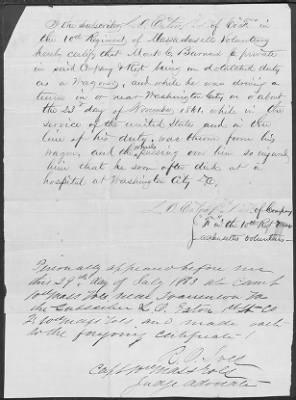 I the subscriber L. O. Eaton of Co "F" in
the 10th Regiment of Massachusetts Volunteers
hereby certify that Mark C. Barnard a private
in said Company & that being on detached duty
as a Wagoner, and while he was driving a
team in or near Washington City on or about
the 23d day of November 1861, while in the
service of the united States and in the
line of his duty, was thrown from his
wagon, and the wheels passing over him so injured
him that he soon after died at a
hospital at Washington City D.C.
L. O. Eaton of Company
"F" in the 10th Regt Mass
achusetts Volunteers
Personally appeared before me
this 29th day of July 1863 at camp
10th Mass Vols near Warrenton Va
the Subscriber L. O. Eaton 1st Lt Co
10th Mass Vols and made oath
to the foregoing Certificate
Capt 10th Mass Vols
Judge Advocate